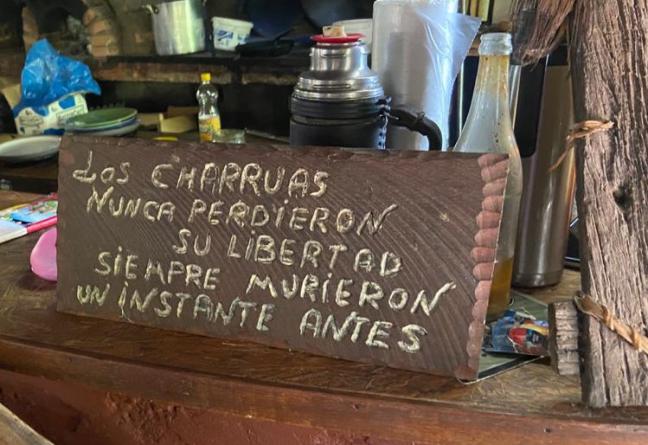 Los CHARRUAS
NUNCA PERDIERON
SU LIBERTAD
SIEMPRE MURIERON
UN INSTANTE ANTES